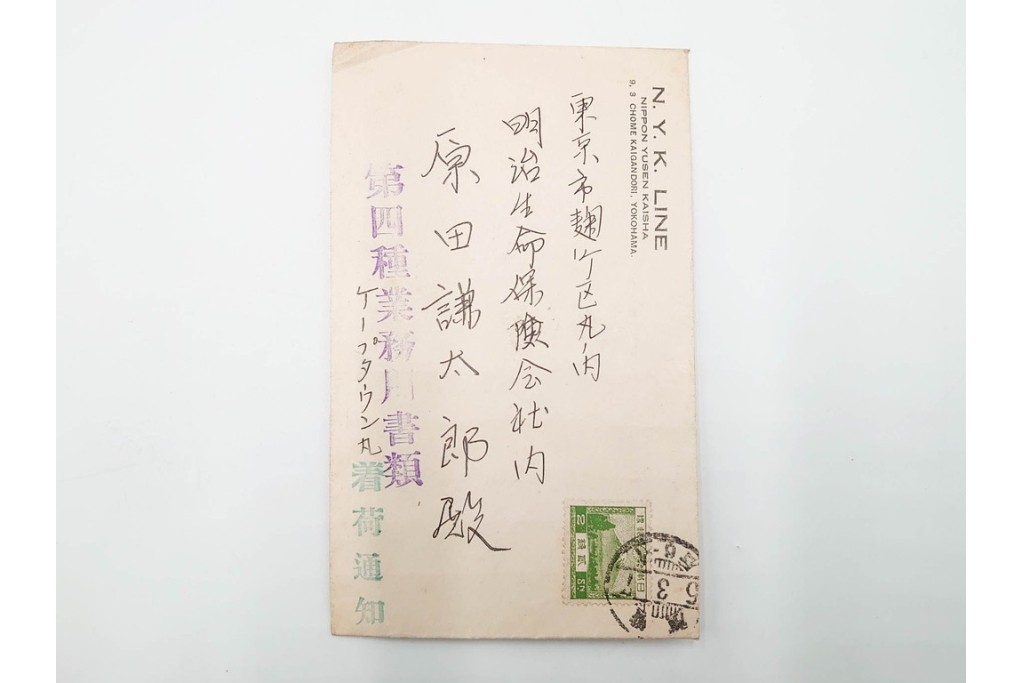 N. Y. K. LINE
NIPPON YUSEN KAISHA
9, 3 CHOME KAIGANDORI, YOKOHAMA.
東京市麹丁区丸ノ内
明治生命保険会社内
原田謙太郎殿
第四種業務用書類
ケープタウン丸
着荷通知
貳銭